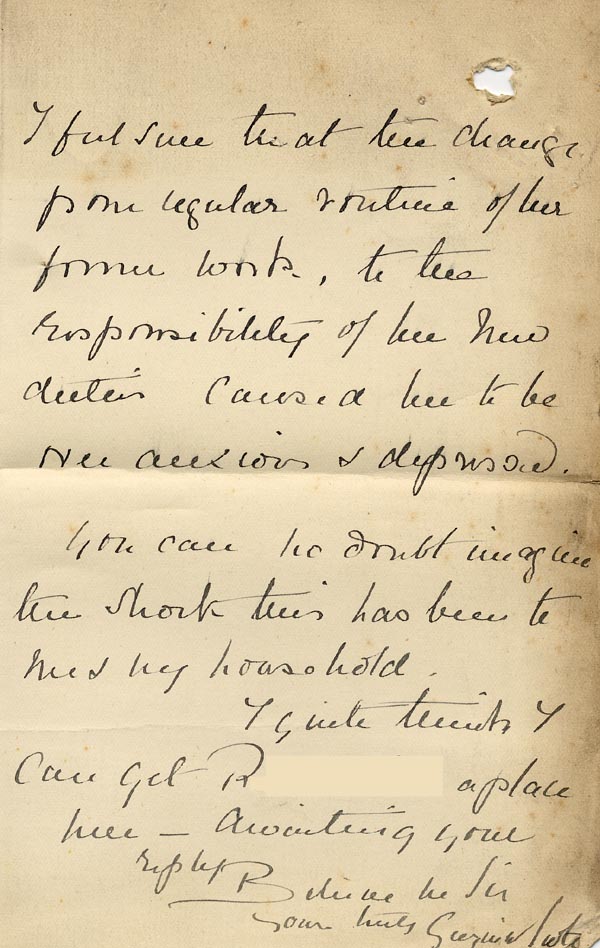 I feel sure that the change
from regular routine of her
former work, to the
responsibility of her new
duties caused her to be
over anxious & depressed.
You can no doubt imagine
the shock this has been to
me & my household.
I quite think I
can get R a place
here – Awaiting your
reply
Believe me Sir
Yours truly